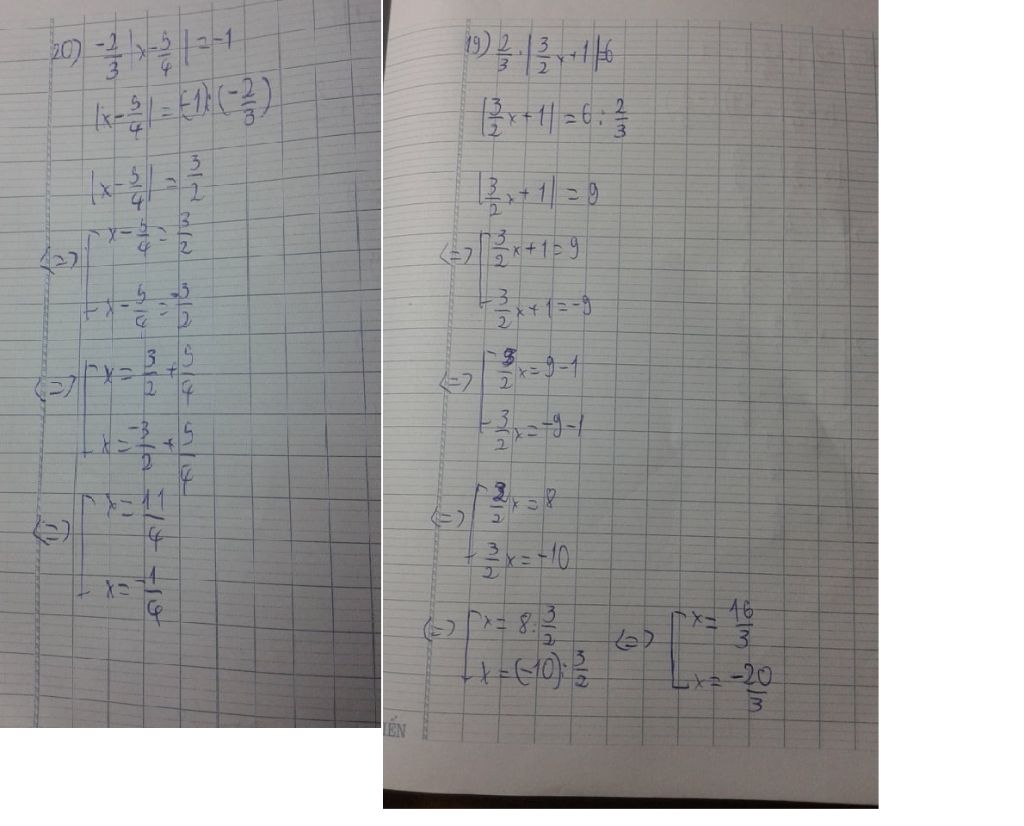 20) -2/3 |x - 5/4| = -1
|x - 5/4| = (-1) : (-2/3)
|x - 5/4| = 3/2
<=> [ x - 5/4 = 3/2
x - 5/4 = -3/2
<=> [ x = 3/2 + 5/4
x = -3/2 + 5/4
<=> [ x = 11/4
x = -1/4
19) 2/3 . |3/2 x + 1| = 6
|3/2 x + 1| = 6 : 2/3
|3/2 x + 1| = 9
<=> [ 3/2 x + 1 = 9
3/2 x + 1 = -9
<=> [ 3/2 x = 9 - 1
3/2 x = -9 - 1
<=> [ 3/2 x = 8
3/2 x = -10
<=> [ x = 8 : 3/2 <=> [ x = 16/3
x = (-10) : 3/2 x = -20/3
IẾN